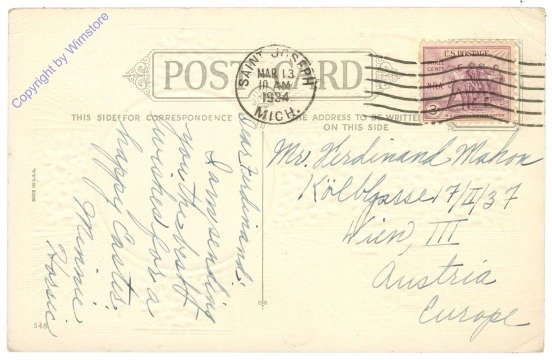 Copyright by Wimstore
POST CARD
SAINT JOSEPH
MAR 13
10 AM
1934
MICH.
U.S. POSTAGE
NRA
3
THIS SIDE FOR CORRESPONDENCE
THE ADDRESS TO BE WRITTEN
ON THIS SIDE
MADE IN U.S.A.
Dear Ferdinand:
I am sending
you the best
wishes for a
happy Easter.
Minnie
548
Mr. Ferdinand Makon
Kölblgasse 17/II/37
Wien, III
Austria
Europe